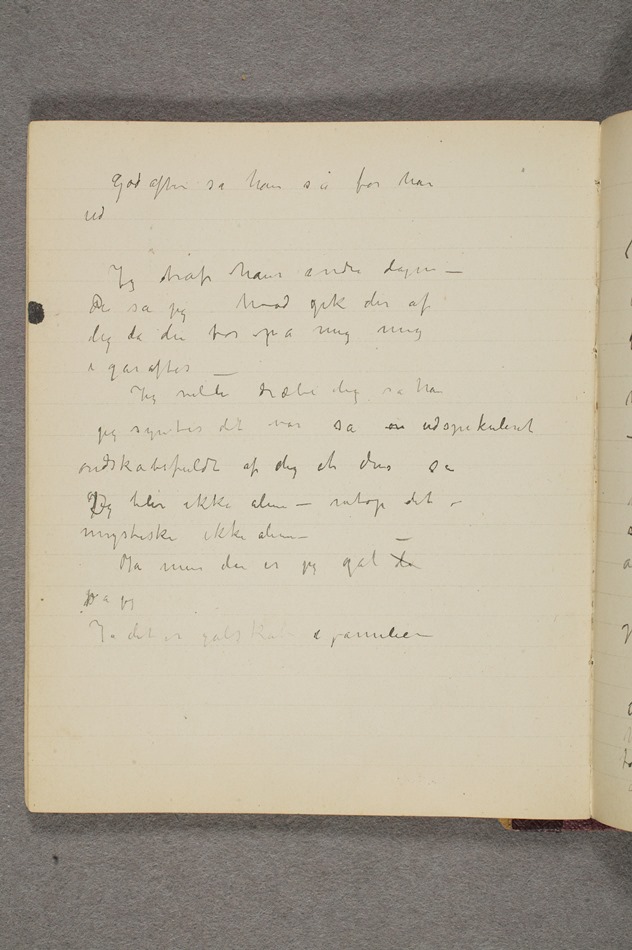 God aften sa han så for han
ud
Jeg traf ham andre dagen —
Du sa jeg hvad gik der af
dig da du for på mig mig
i gar aftes —
Jeg vilde dræbe dig sa han
jeg syntes det var sa en udspekuleret
ondskabsfuldt af dig at du sa
Jeg blir ikke alene — netop det –
mystiske ikke alene —
Ha men da er jeg gal da
sa jeg
Ja det er galskab i familien